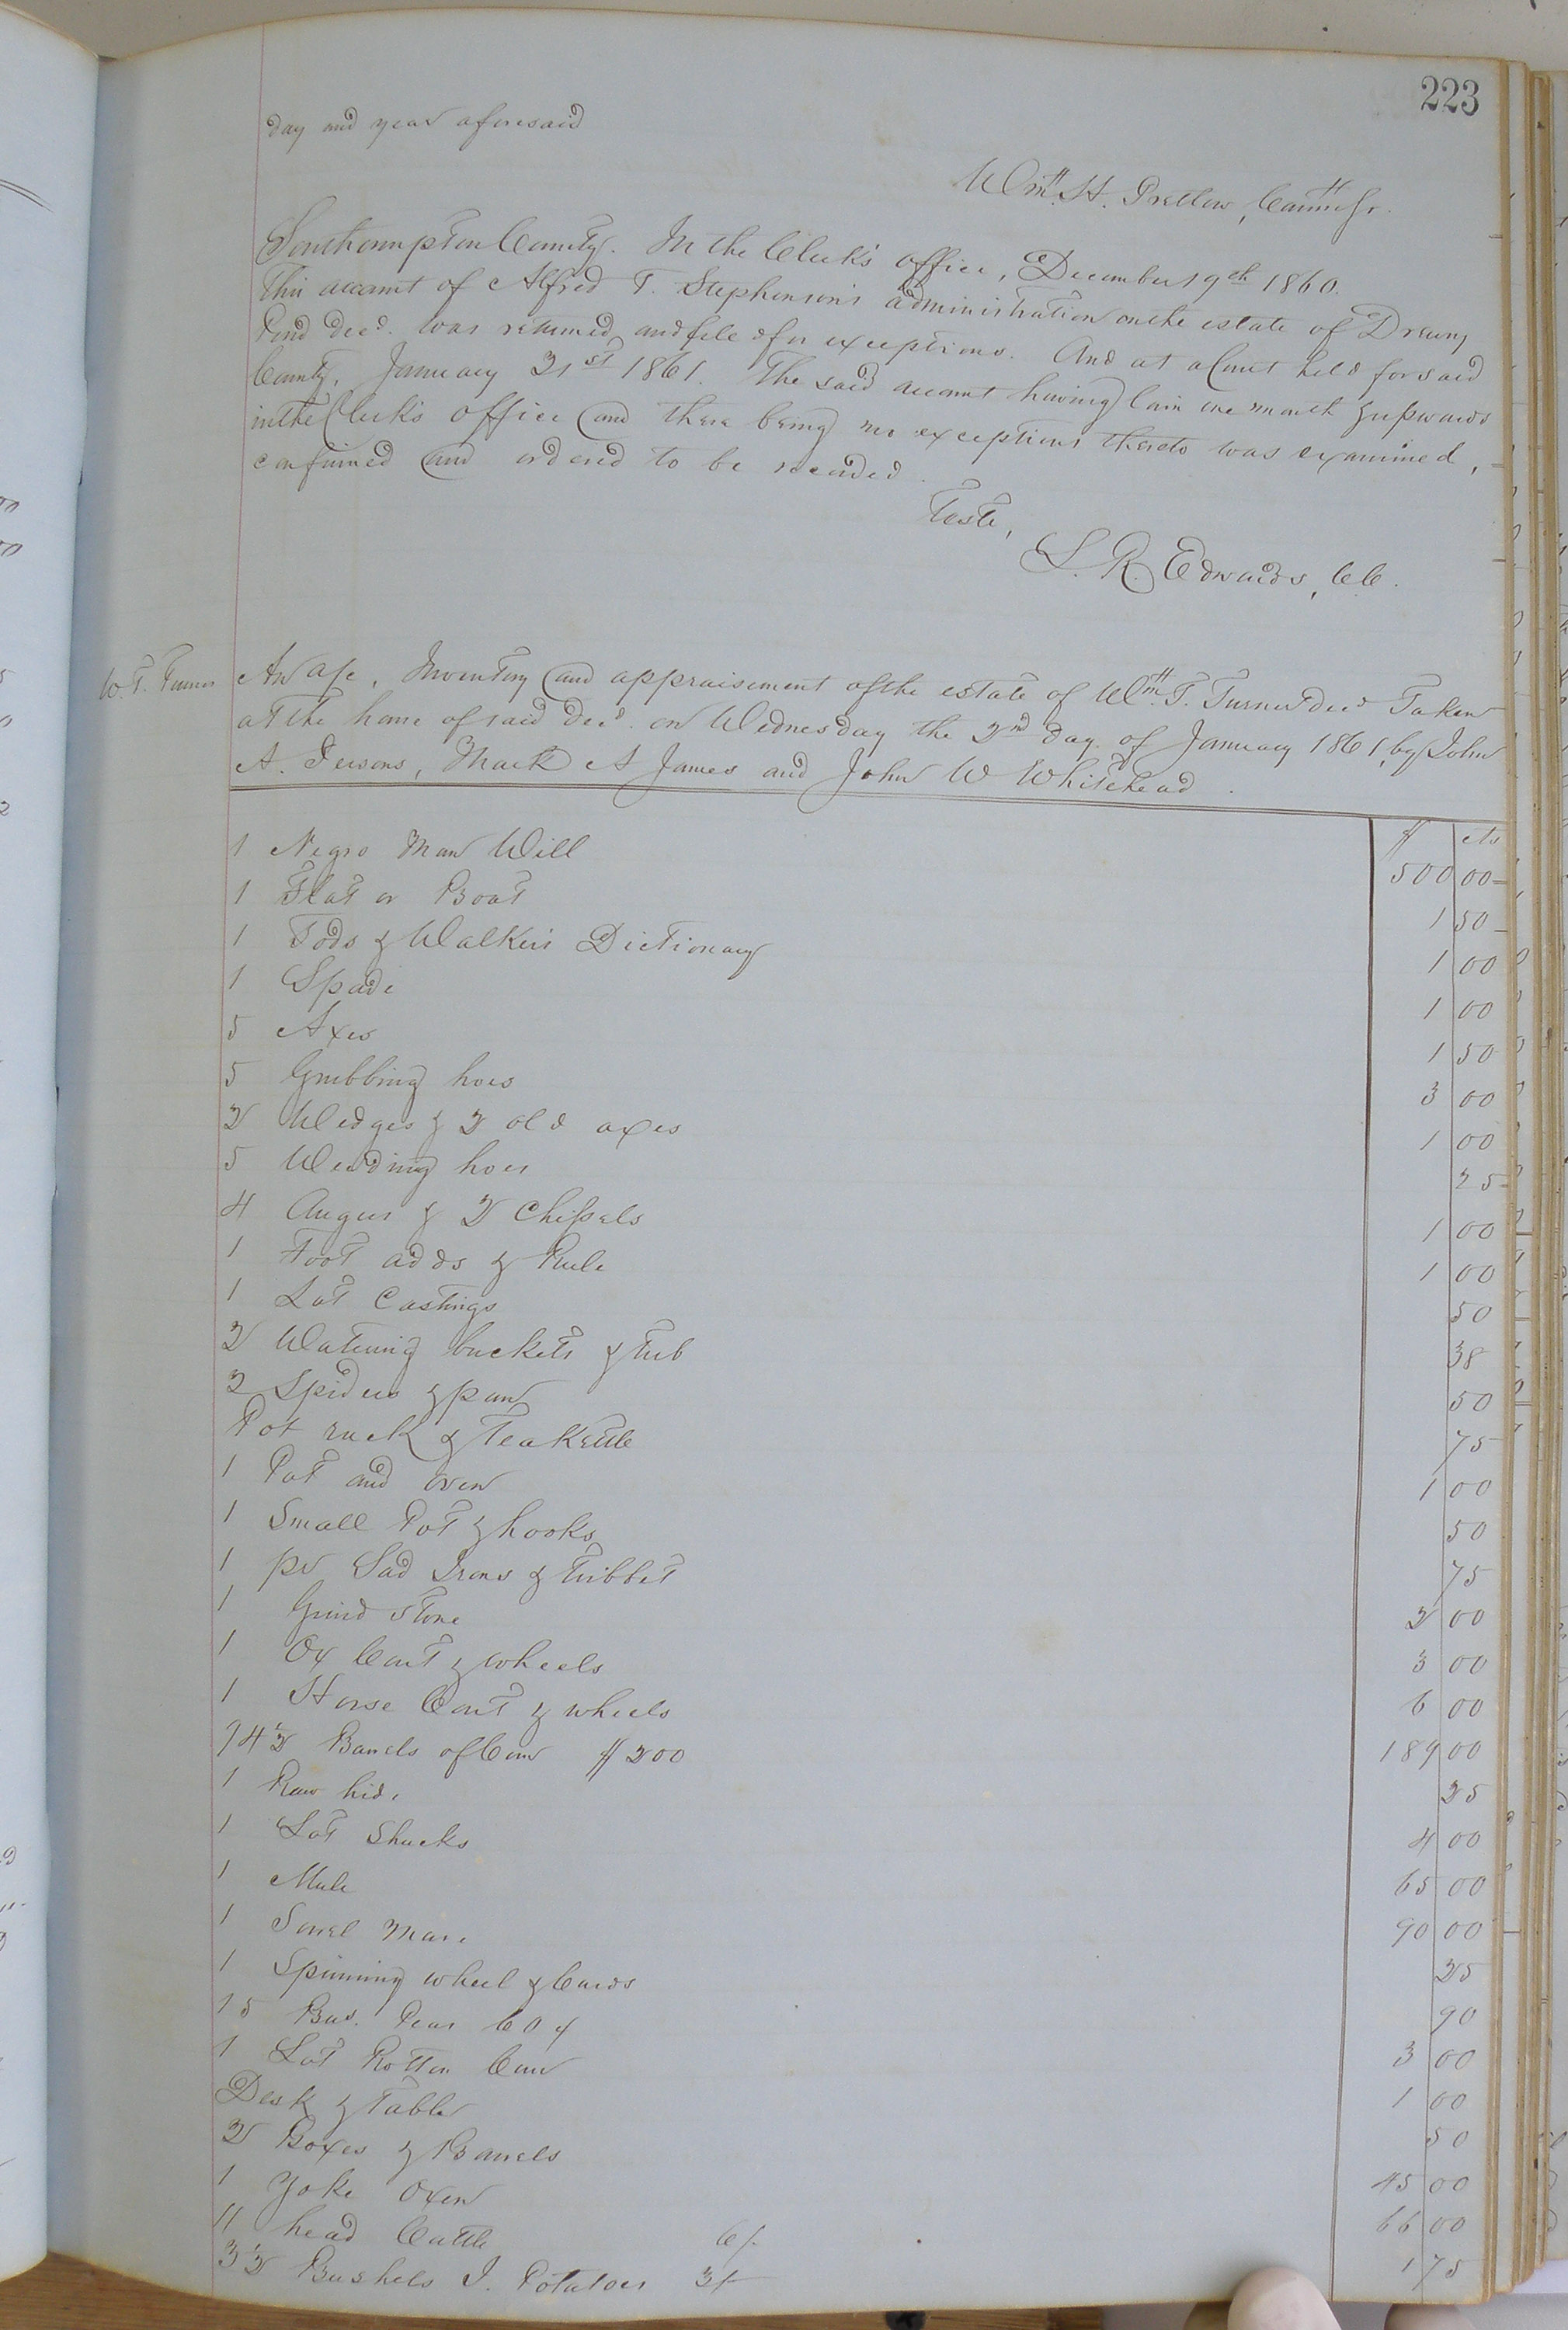 223
day and year aforesaid
Wm. H. Pretlow, Commissr.
Southampton County. In the Clerk's office, December 19th 1860.
This account of Alfred T. Stephenson's administration on the estate of Drewry
Pond decd. was returned and filed for exceptions. And at a Court held for said
County, January 21st 1861. The said account having lain one month & upwards
in the Clerk's office and there being no exceptions thereto was examined,
confirmed and ordered to be recorded.
Teste,
L. R. Edwards, CC.
W. T. Turner
An a/c, Inventory and appraisement of the estate of Wm. T. Turner decd Taken
at the home of said decd. on Wednesday the 2nd day of January 1861, by John
A. Persons, Mark A James and John W Whitehead.
$ cts
1 Negro Man Will 500 00
1 Flat or Boat 1 50
1 Tods & Walker's Dictionary 1 00
1 Spade 1 00
5 Axes 1 50
5 Grubbing hoes 3 00
2 Wedges & 2 old axes 1 00
5 Weeding hoes 25
4 Augers & 2 Chissels 1 00
1 Foot adds & Rule 1 00
1 Lot Castings 50
2 Watering buckets & tub 38
2 Spiders & pan 50
Pot rack & Tea Kettle 75
1 Pot and oven 1 00
1 Small Pot & hooks 50
1 pr Sad Irons & Tribbet 75
1 Grind stone 2 00
1 Ox Cart & wheels 3 00
1 Horse Cart & wheels 6 00
94½ Barrels of Corn $2 00 189 00
1 Raw hide 25
1 Lot Shucks 4 00
1 Mule 65 00
1 Sorrel Mare 90 00
1 Spinning wheel & Cards 25
15 Bus. Peas 60 ¢ 90
1 Lot Rotten Corn 3 00
Desk & Table 1 00
2 Boxes & Barrels 50
1 Yoke Oxen 45 00
11 head Cattle 6/- 66 00
3½ Bushels I. Potatoes 3/- 1 75